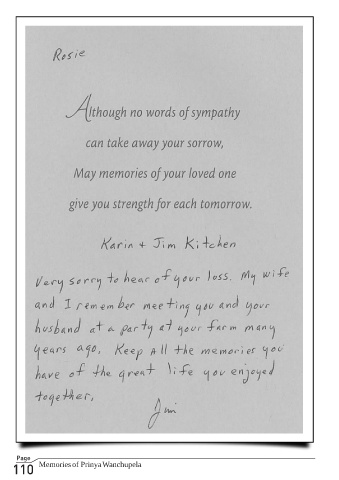 Rosie
Although no words of sympathy
can take away your sorrow,
May memories of your loved one
give you strength for each tomorrow.
Karin + Jim Kitchen
Very sorry to hear of your loss. My wife
and I remember meeting you and your
husband at a party at your farm many
years ago. Keep all the memories you
have of the great life you enjoyed
together.
Jim
Page
110 Memories of Prinya Wanchupela